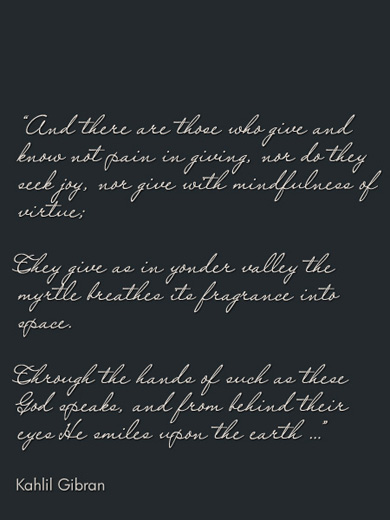 "And there are those who give and
know not pain in giving, nor do they
seek joy, nor give with mindfulness of
virtue;
They give as in yonder valley the
myrtle breathes its fragrance into
space.
Through the hands of such as these
God speaks, and from behind their
eyes He smiles upon the earth ..."
Kahlil Gibran